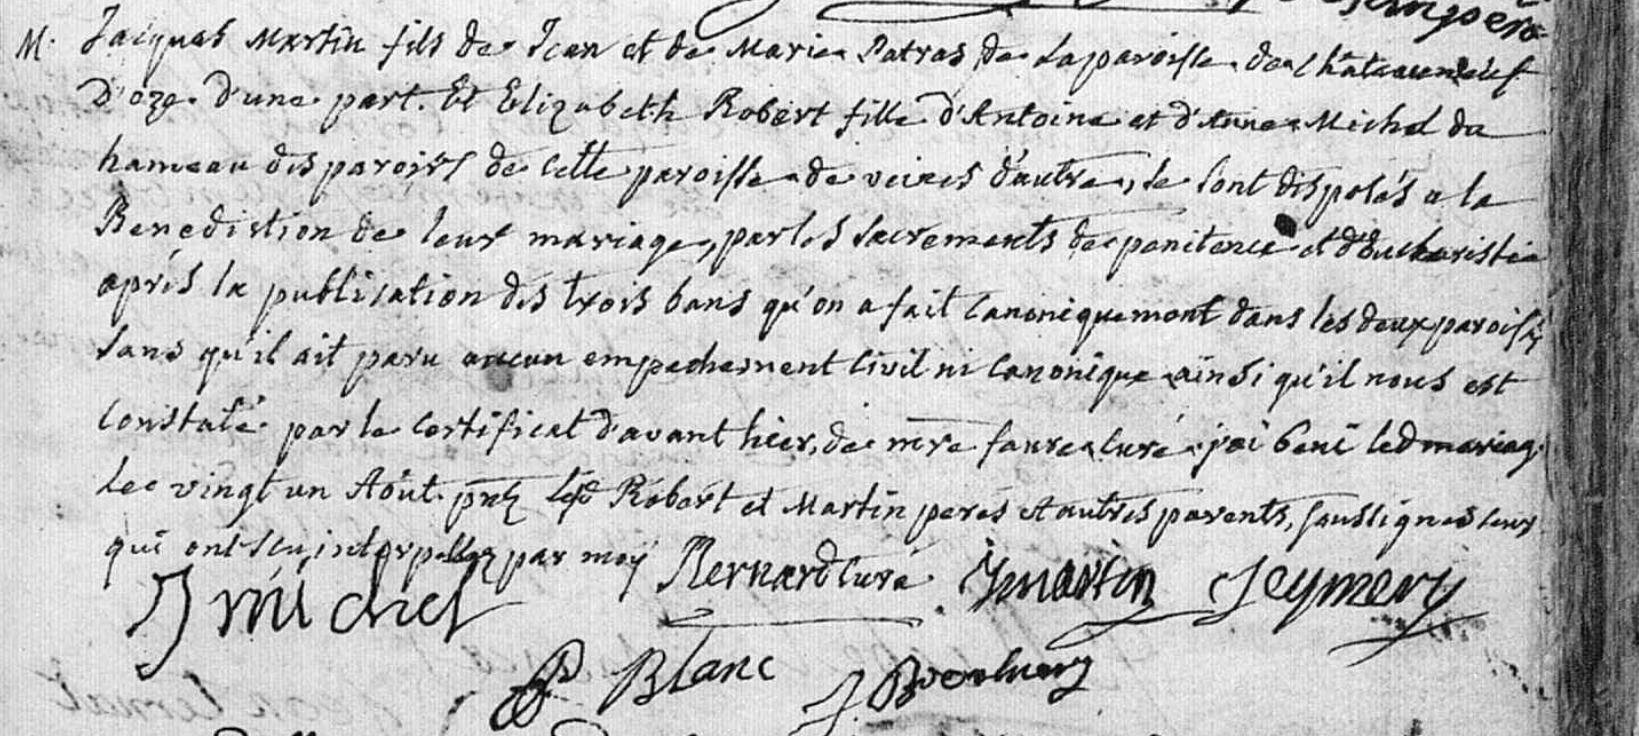 M. Jacques Martin fils de Jean et de Marie Patras de la paroisse de Chateauneuf
D'oze d'une part. Et Elizabeth Robert fille d'Antoine et d'Anne Michel du
hameau des paroirs de cette paroisse de veines d'autre, se sont disposés a la
Benediction de leur mariage, par les sacrements de penitence et d'Eucharistie
après la publication des trois bans qu'on a fait canoniquement dans les deux paroisses
sans qu'il ait paru aucun empechement civil ni canonique ainsi qu'il nous est
constaté par le certificat d'avant hier, de mre faure curé j'ai beni led mariage
le vingt un Août. pnts Robert et Martin peres et autres parents, soussignes ceux
qui ont sçu, interpellez par moy Bernard curé J martin J eymery
J michel
P Blanc J